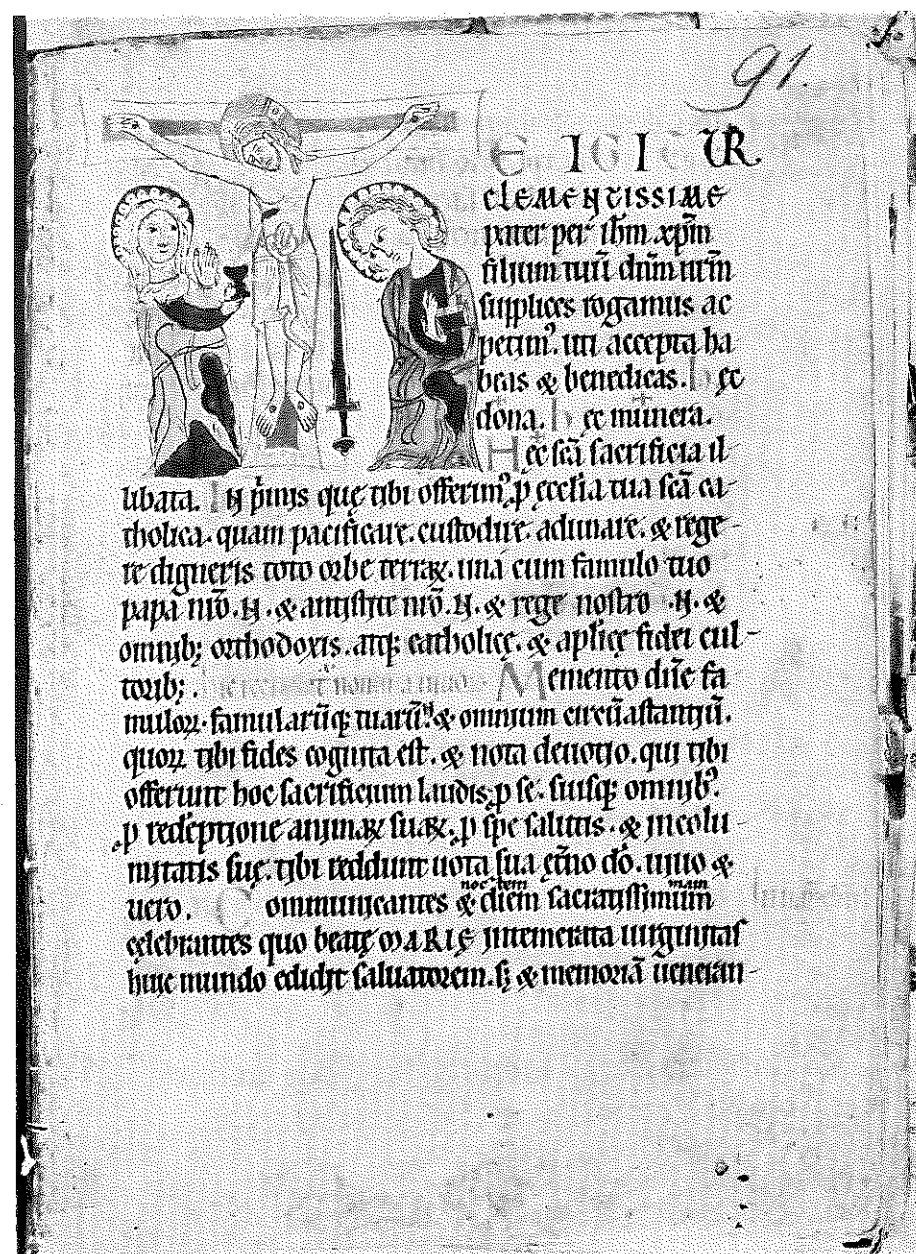 91.
E IGIT UR
CLEMENTISSIME
pater per ihm xpm
filium tuū dnm nrm
supplices rogamus ac
petim᷒. uti accepta ha
beas & benedicas. h ęc
dona. h ęc munera.
H ęc scā sacrificia il
libata. I N pmis quę tibi offerim᷒. p ęcclia tua scā ca-
tholica. quam pacificare. custodire. adunare. & rege-
re digneris toto orbe terraꝝ. una cum famulo tuo
papa nrō. N. & antistite nrō. N. & rege nostro .N. &
omnib; orthodoxis. atq; catholicę. & aplicę fidei cul-
torib;. M emento dn̄e fa
muloꝝ. famularūq; tuarū. N & omnium circūastantiū.
quoꝝ tibi fides cognita est. & nota deuotio. qui tibi
offerunt hoc sacrificium laudis. p se. suisq; omnib᷒.
p redēptione animaꝝ suaꝝ. p spe salutis. & incolu-
mitatis suę. tibi reddunt uota sua ętno dō. uiuo &
uero. C ommunicantes & diem noctem sacratissimum mam
cęlebrantes quo beatę MARIĘ intemerata uirginitas
huic mundo edidit saluatorem. s; & memoriā ueneran-